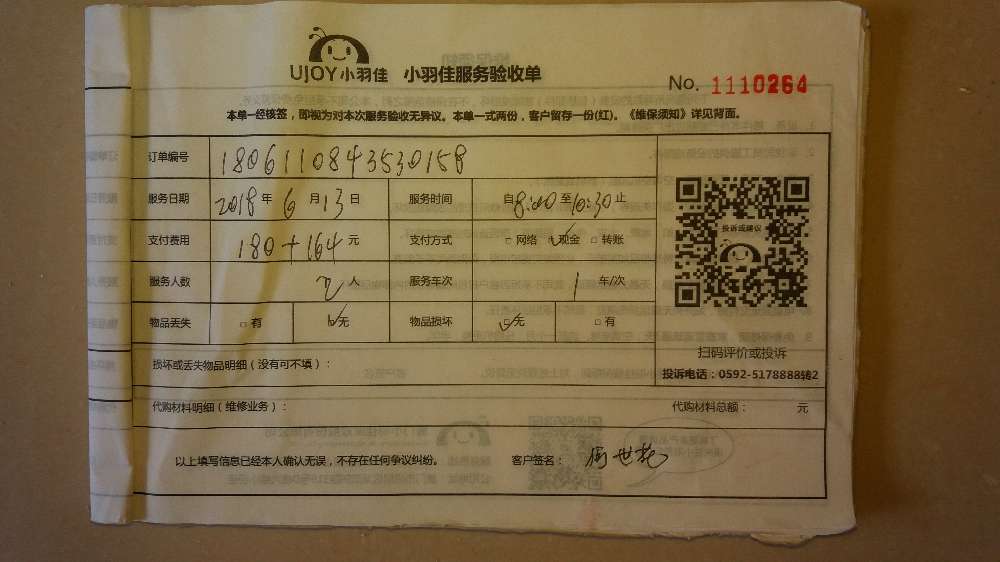 UJOY小羽佳 小羽佳服务验收单
No. 1110264
本单一经核签，即视为对本次服务验收无异议。本单一式两份，客户留存一份(红)。《维保须知》详见背面。
订单编号 1806110843530158
服务日期 2018年6月13日 服务时间 自8:00至10:30止
支付费用 180+164元 支付方式 □网络 ☑现金 □转账
服务人数 2人 服务车次 1车/次
物品丢失 □有 ☑无 物品损坏 ☑无 □有
投诉或建议
扫码评价或投诉
投诉电话：0592-5178888转2
损坏或丢失物品明细（没有可不填）：
代购材料明细（维修业务）： 代购材料总额： 元
以上填写信息已经本人确认无误，不存在任何争议纠纷。 客户签名：